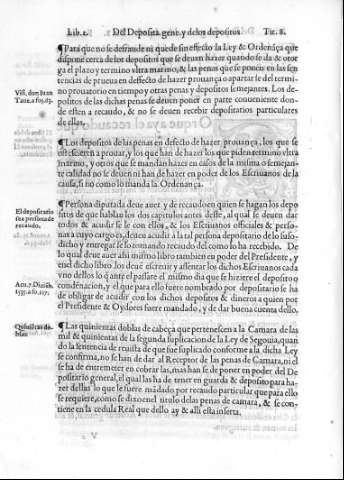 Lib. 1. Del Deposita. gene. y de los depositos Tit. 8.
¶Para que no se defraude ni quede sin effecto la Ley & Ordenãça que
dispone cerca de los depositos que se deuen hazer quando se da & otor
ga el plazo y termino vltra marino, & las penas que se ponẽ en las sen
tencias de prueua en defecto de hazer prouança o apartar se del termi
no prouatorio en tiempo y otras penas y depositos semejantes. Los de-
positos de las dichas penas se deuen poner en parte conueniente don-
de esten a recaudo, & no se deuen recibir depositarios particulares
de ellas.
Visi. don Iuan
Taue. a foj. 63.
¶Los depositos de las penas en defecto de hazer prouança, los que se
ofrescieren a prouar, y los que han de hazer los que piden termino vltra
marino, y otros que se mandan hazer en casos de la misma o semejan-
te calidad no se deuen ni han de hazer en poder de los Escriuanos de la
causa, si no como lo manda la Ordenança.
El depositario
sea persona de
recaudo.
¶Persona diputada deue auer y de recaudo en quien se hagan los depo
sitos de que hablan los dos capitulos antes deste, al qual se deuen dar
todos & acudir se le con ellos, & los Escriuanos officiales & perso-
nas a cuyo cargo es, deuen acudir a la tal persona depositario de lo suso-
dicho y entregar se lo tomando recaudo del como lo ha recebido. De
lo qual deue auer ahi mismo libro tambien en poder del Presidente, y
en el dicho libro los deuẽ escreuir y assentar los dichos Escriuanos cada
vno dellos lo q̃ ante el passare el mismo dia que se hiziere el deposito o
condẽnacion, y el que para ello fuere nombrado por depositario se ha
de obligar de acudir con los dichos depositos & dineros a quien por
el Presidente & Oydores fuere mandado, y de dar buena cuenta dello.
¶Las quinientas doblas de cabeça que pertenescen a la Camara de las
mil & quinientas de la segunda suplicacion de la Ley de Segouia, quan
do la sentencia de reuista de que fue suplicado conforme a la dicha Ley
se confirma, no se han de dar al Receptor de las penas de Camara, ni el
se ha de entremeter en cobrar las, mas han se de poner en poder del De
positario general, el qual las ha de tener en guarda & deposito para ha-
zer dellas lo que le fuere mãdado, por recaudo particular que para ello
se requiere, como se dixo en el titulo delas penas de camara, & se con-
tiene en la cedula Real que dello ay & alli esta inserta.